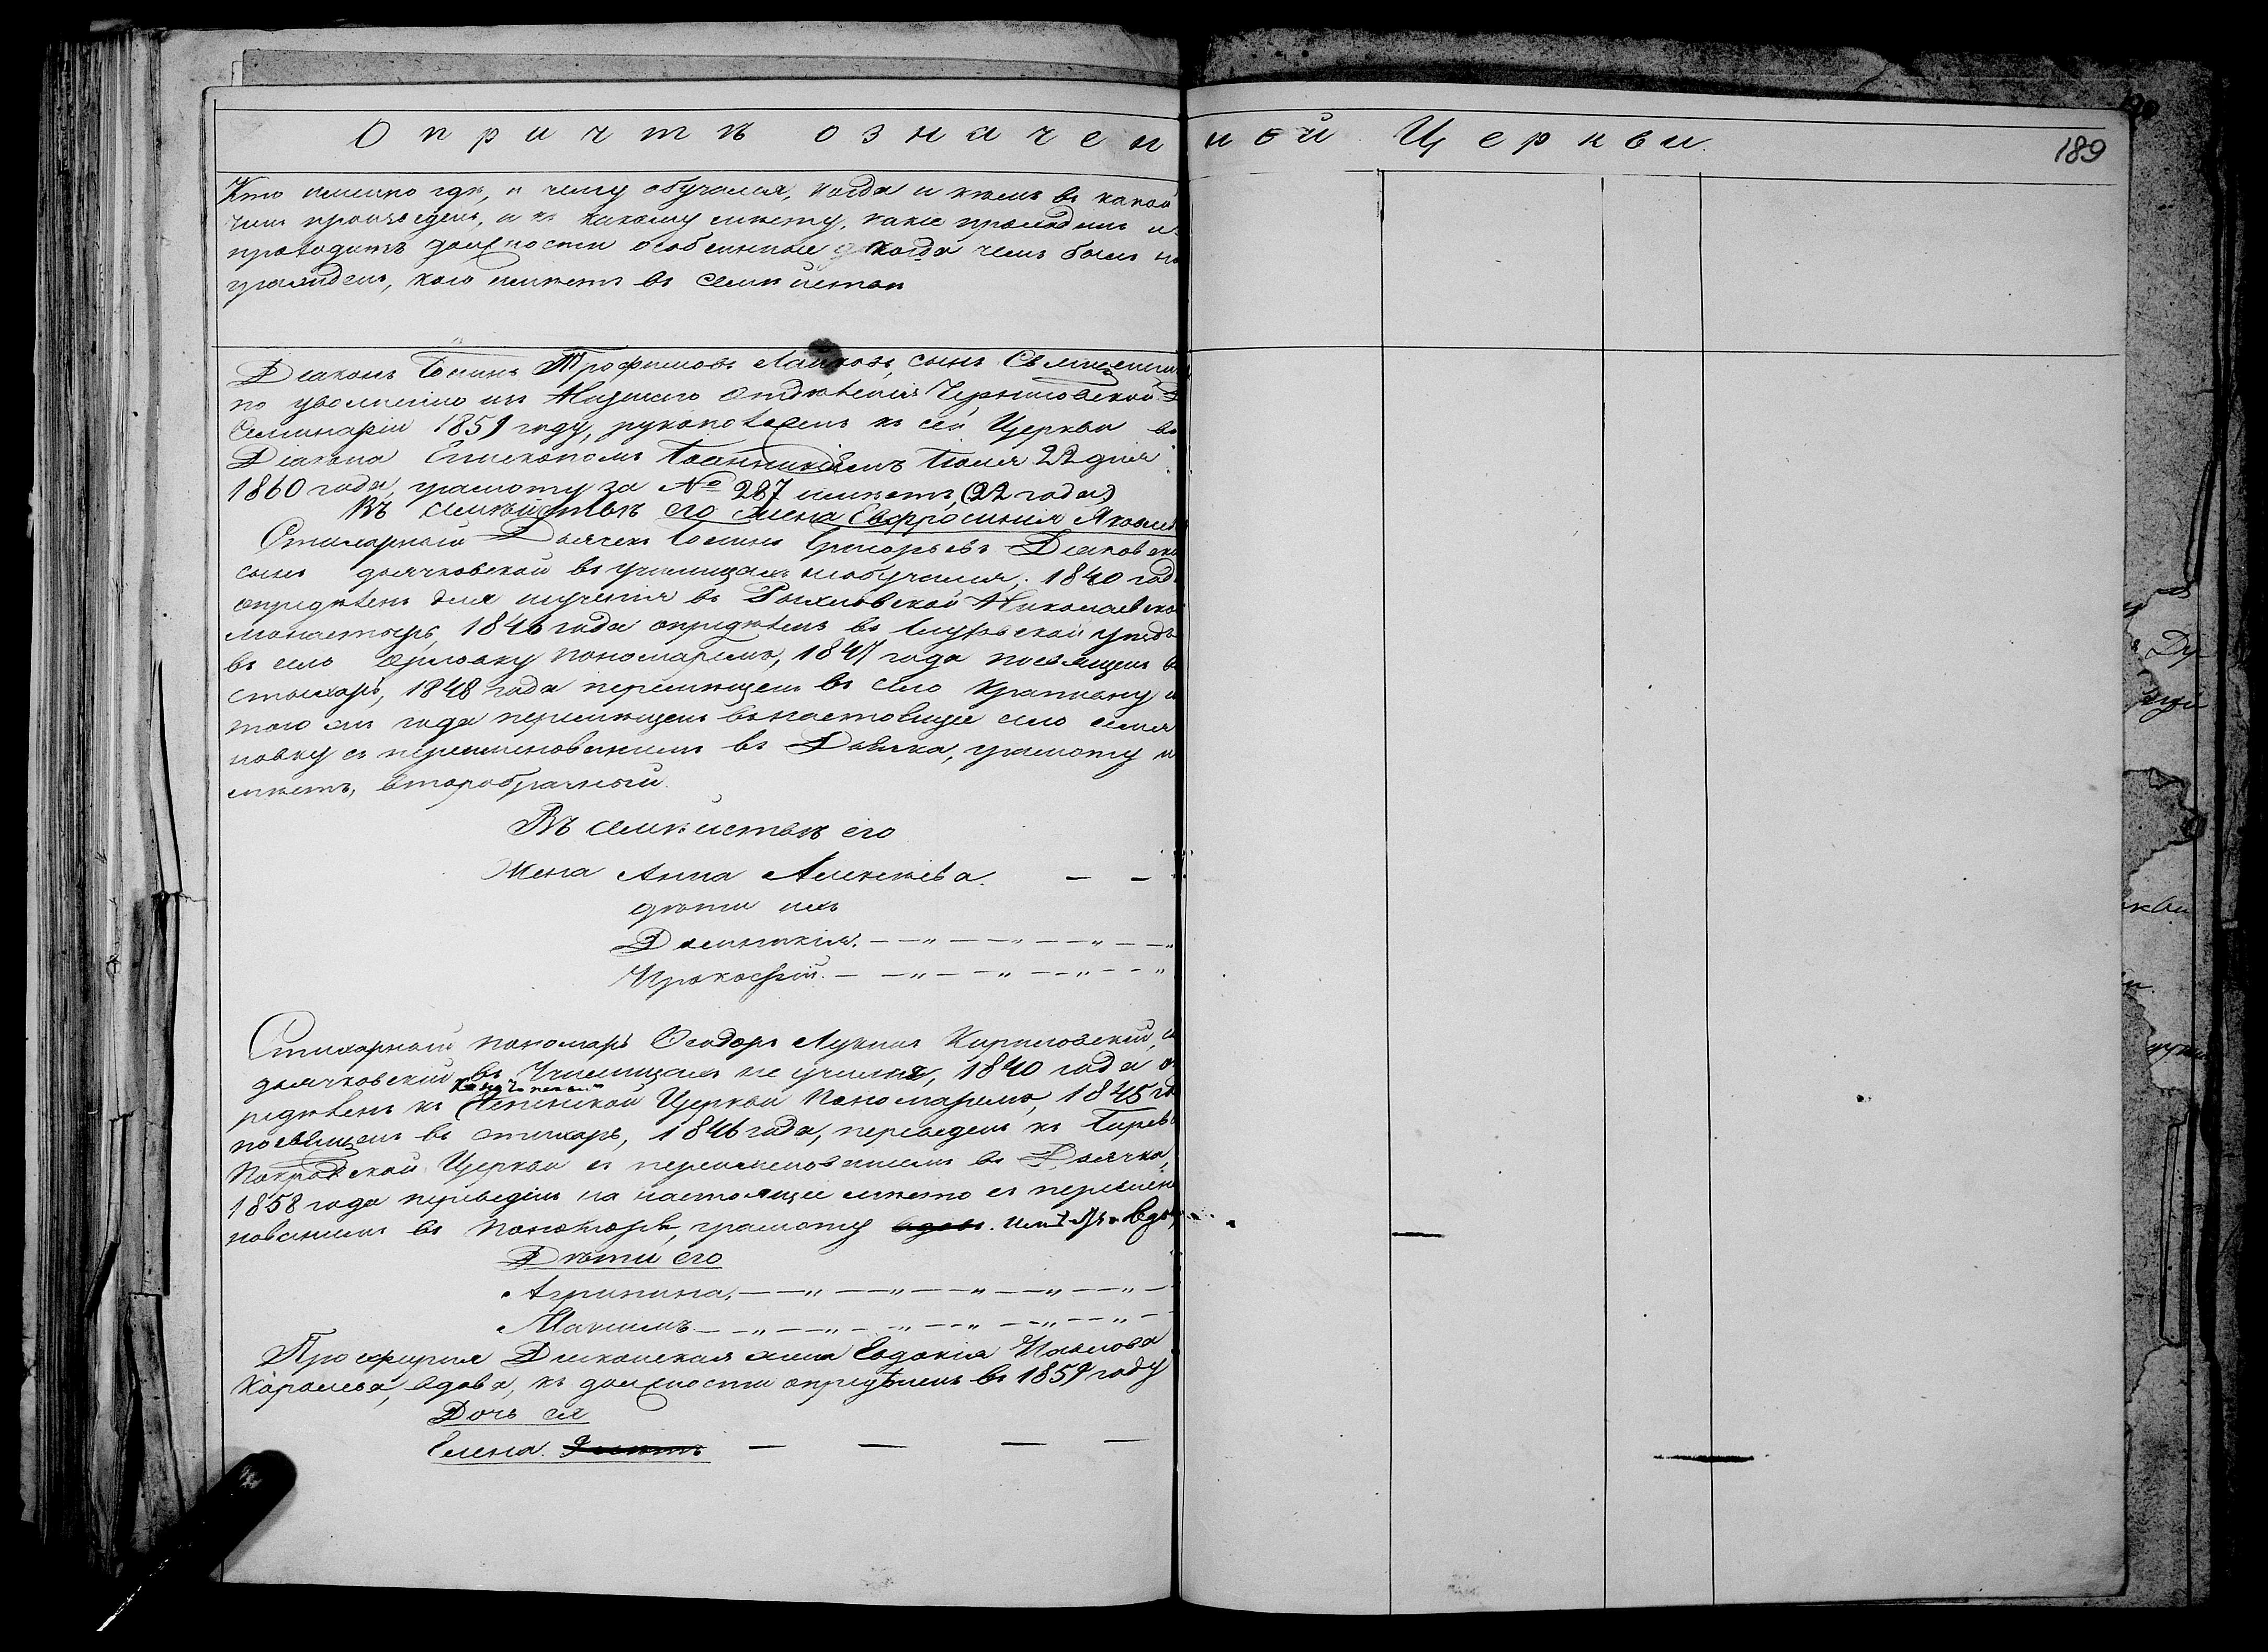 О причтѣ означенной Церкви.
189
Кто именно гдѣ, и чему обучался, когда и кѣмъ въ какой
чинъ произведенъ, и къ какому мѣсту, какіе проходилъ и
проходитъ должности особенные и когда чемъ былъ на
гражденъ, кого имѣетъ въ семействѣ
Діаконъ Іоаннъ Трофимовъ сынъ Священни
по уволненію изъ Низшаго Отдѣленія Черниговской Д
Семинаріи 1859 году, рукоположенъ къ сей Церкви во
Діакона Епископомъ Іюля 22 дня
1860 года, грамоту за № 287 имѣетъ, (22 года)
Въ семѣйствѣ его жена Евфросинія Яковле
Стихарный Дьячекъ Іоаннъ Григорьевъ Діаковск
сынъ дьячковской въ училищахъ необучался; 1840 год
опредѣленъ для изученія въ Рыхловской Николаевско
монастырь, 1846 года опредѣленъ въ уѣздъ
въ село Орловку пономаремъ, 1847 года посвященъ въ
стихарь, 1848 года перемѣщенъ въ село и
того же года перемѣщенъ въ настоящее село
новку съ переименованіемъ въ Дьячка, грамоту и
мѣетъ, второбрачный.
Въ семѣйствѣ его
Жена Анна Алексѣева. — —
дѣти ихъ
— „ — — „ — — „ — — „
Прокофій. — — „ — — „ — — „ — — „
Стихарный пономарь Ѳеодоръ Лукинъ Кириловскій, с
дьячковскій въ Училищахъ не учился, 1840 года оп
редѣленъ къ Церкви Пономаремъ, 1845 го
посвященъ въ стихарь, 1846 года, переведенъ къ
Покровской Церкви съ переименованіемъ въ Дьячка,
1858 года переведенъ на настоящее мѣсто съ переиме
нованіемъ въ Пономаря, грамоту имѣетъ вдов
Дѣти его
Агрипина, — — „ — — „ — — „ — — „ — — „ —
Максимъ — — „ — — „ — „ — — „ — — „ — — „ —
Просфирня Діаконская жена Евдокія Иванова
вдова, къ должности опредѣлена въ 1859 году
Дочь ея
Елена. — — — —